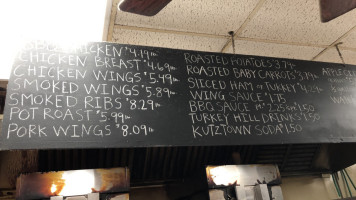 BBQ CHICKEN $4.19lb
CHICKEN BREAST $4.69lb
CHICKEN WINGS $5.49lb
SMOKED WINGS $5.89lb
SMOKED RIBS $8.29lb
POT ROAST $5.99lb
PORK WINGS $8.09lb
ROASTED POTATOES 3.79lb
ROASTED BABY CARROTS 3.79lb
SLICED HAM or TURKEY $4.29lb
WING SAUCE $1.75
BBQ SAUCE
TURKEY HILL DRINKS $1.50
KUTZTOWN SODA $1.50
APPLE